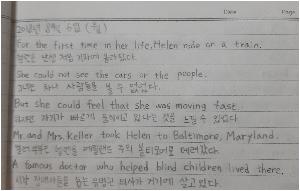 Date Page
For the first time in her life, Helen rode on a train.
헬렌은 난생 처음 기차에 올라탔다.
She could not see the cars or the people.
그녀는 차나 사람들을 볼 수 없었다.
But she could feel that she was moving fast.
그러나 그녀가 빠르게 움직이고 있다는 것을 느낄 수 있었다.
Mr. and Mrs. Keller took Helen to Baltimore, Maryland.
켈러부부는 헬렌을 메릴랜드 주의 볼티모어로 데려갔다.
A famous doctor who helped blind children lived there.
시각 장애아들을 돕는 유명한 의사가 거기에 살고 있었다.